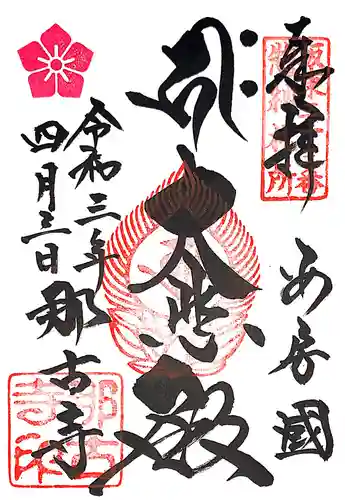 奉拝
安房國
大悲殿
令和三年
四月三日
那古寺
那古
寺印